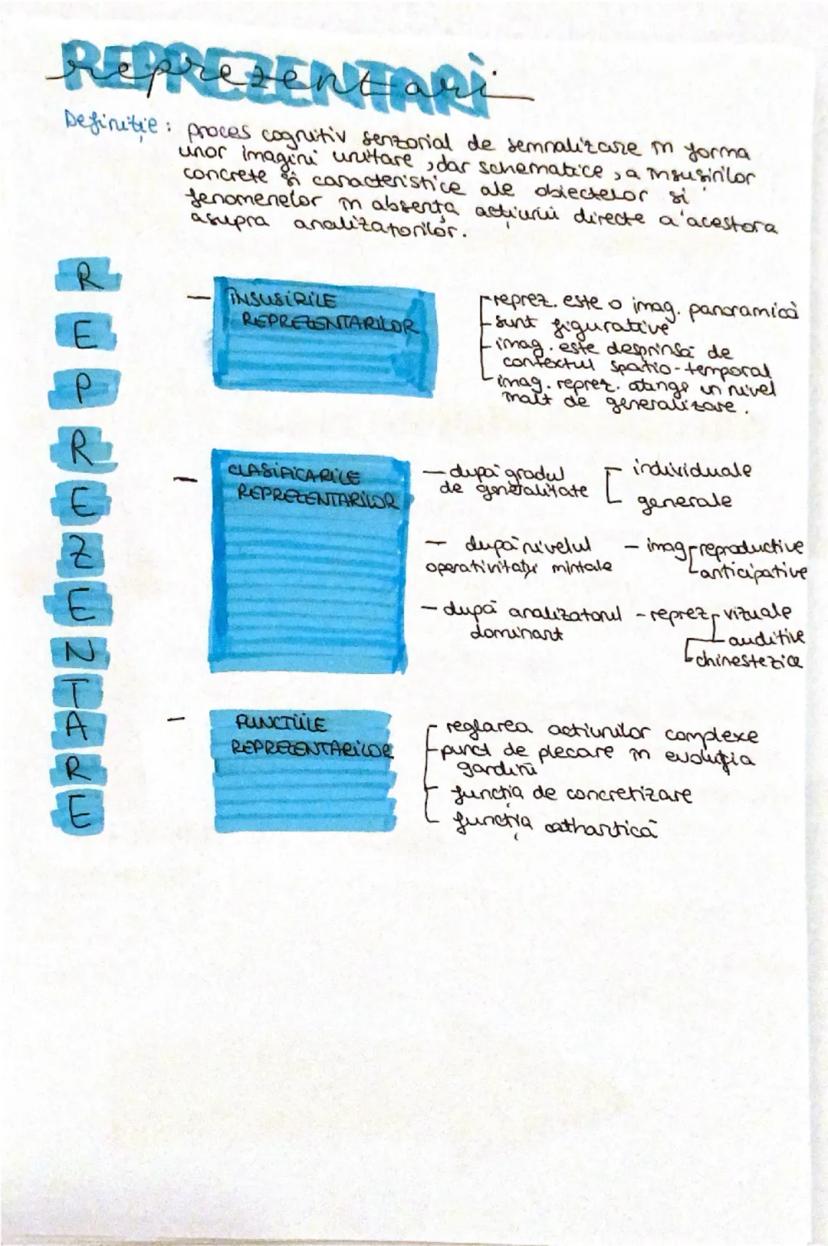 REPREZENTARI
reprezentari
Definiție: proces cognitiv senzorial de semnalizare în forma
unor imagini unitare, dar schematice, a însusirilor
concrete și caracteristice ale obiectelor si
fenomenelor în absența acțiunii directe a acestora
asupra analizatorilor.
R
E
P
R
E
Z
E
N
T
A
R
E
— INSUSIRILE
REPREZENTARILOR
reprez. este o imag. panoramică
sunt figurative
imag. este desprinsă de
contextul spatio-temporal
imag. reprez. atinge un nivel
înalt de generalizare.
— CLASIFICARILE
REPREZENTARILOR
— după gradul
de generalitate
individuale
generale
— după nivelul
operativitații mintale
— imag
reproductive
anticipative
— după analizatorul
dominant
- reprez
vizuale
auditive
chinestezice
— FUNCTIILE
REPREZENTARILOR
reglarea actiunilor complexe
punct de plecare în evoluția
gandirii
funcția de concretizare
funcția cathartică